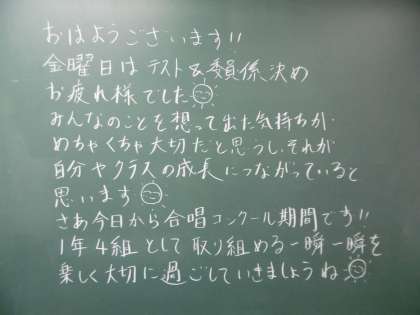 おはようございます!!
金曜日はテスト&委員係決め
お疲れ様でした
みんなのことを想って出た気持ちが
めちゃくちゃ大切だと思うし、それが
自分やクラスの成長につながっていると
思います
さあ今日から合唱コンクール期間です!!
1年4組として取り組める一瞬一瞬を
楽しく大切に過ごしていきましょうね